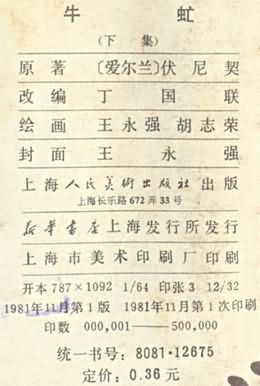 牛 虻
(下 集)
原 著 〔爱尔兰〕伏 尼 契
改 编 丁 国 联
绘 画 王 永 强 胡 志 荣
封 面 王 永 强
上海人民美術出版社出版
上海长乐路672弄33号
新华书店上海发行所发行
上海市美术印刷厂印刷
开本 787×1092 1/64 印张 3 12/32
1981年11月第1版 1981年11月第1次印刷
印数 000,001——500,000
统一书号: 8081·12675
定价: 0.36 元